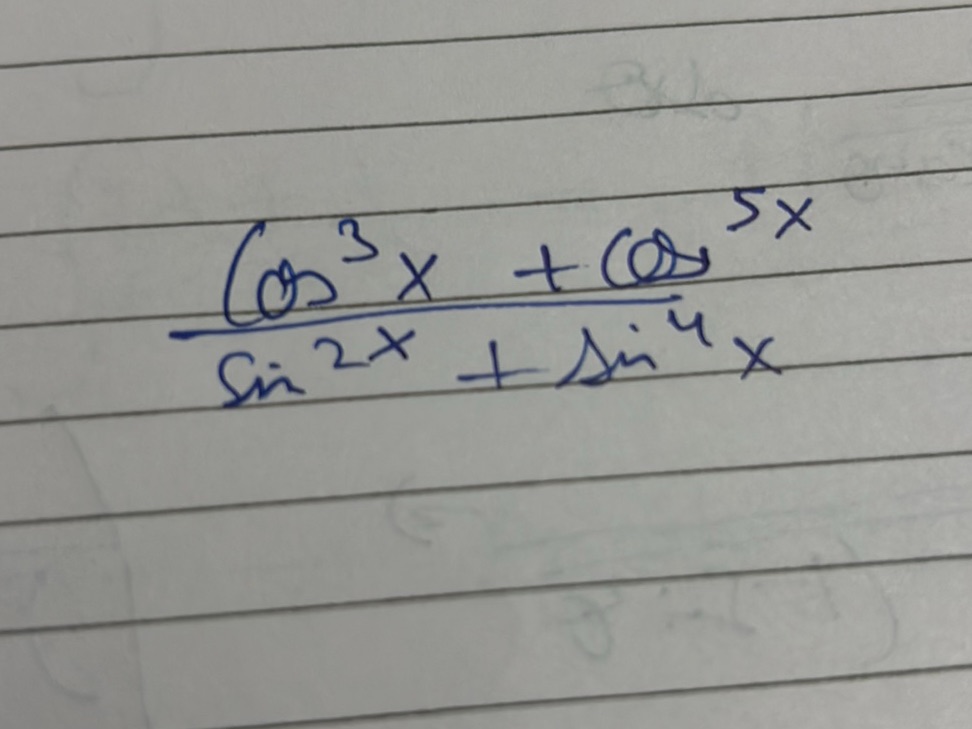 Cos³x + Cos⁵x
sin²x + sin⁴x